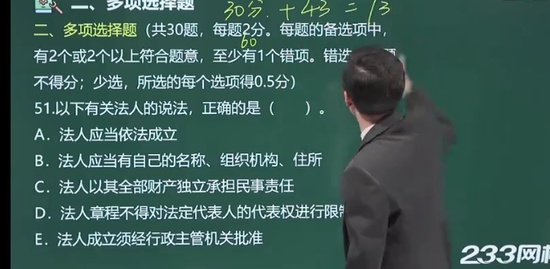 二、多项选择题 30分 + 43 = 13
二、多项选择题（共30题，每题2分。每题的备选项中，
60
有2个或2个以上符合题意，至少有1个错项。错选
不得分；少选，所选的每个选项得0.5分）
51.以下有关法人的说法，正确的是（ ）。
A．法人应当依法成立
B．法人应当有自己的名称、组织机构、住所
C．法人以其全部财产独立承担民事责任
D．法人章程不得对法定代表人的代表权进行限
E．法人成立须经行政主管机关批准
233网校